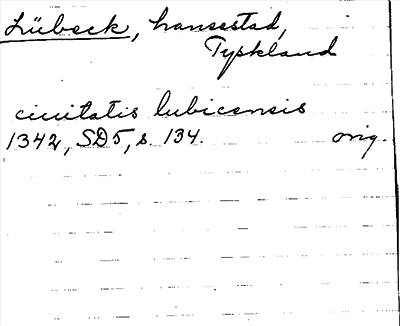 Lübeck, hansestad,
Tyskland
ciuitatis lubicensis
1342, SD5, s. 134. orig.